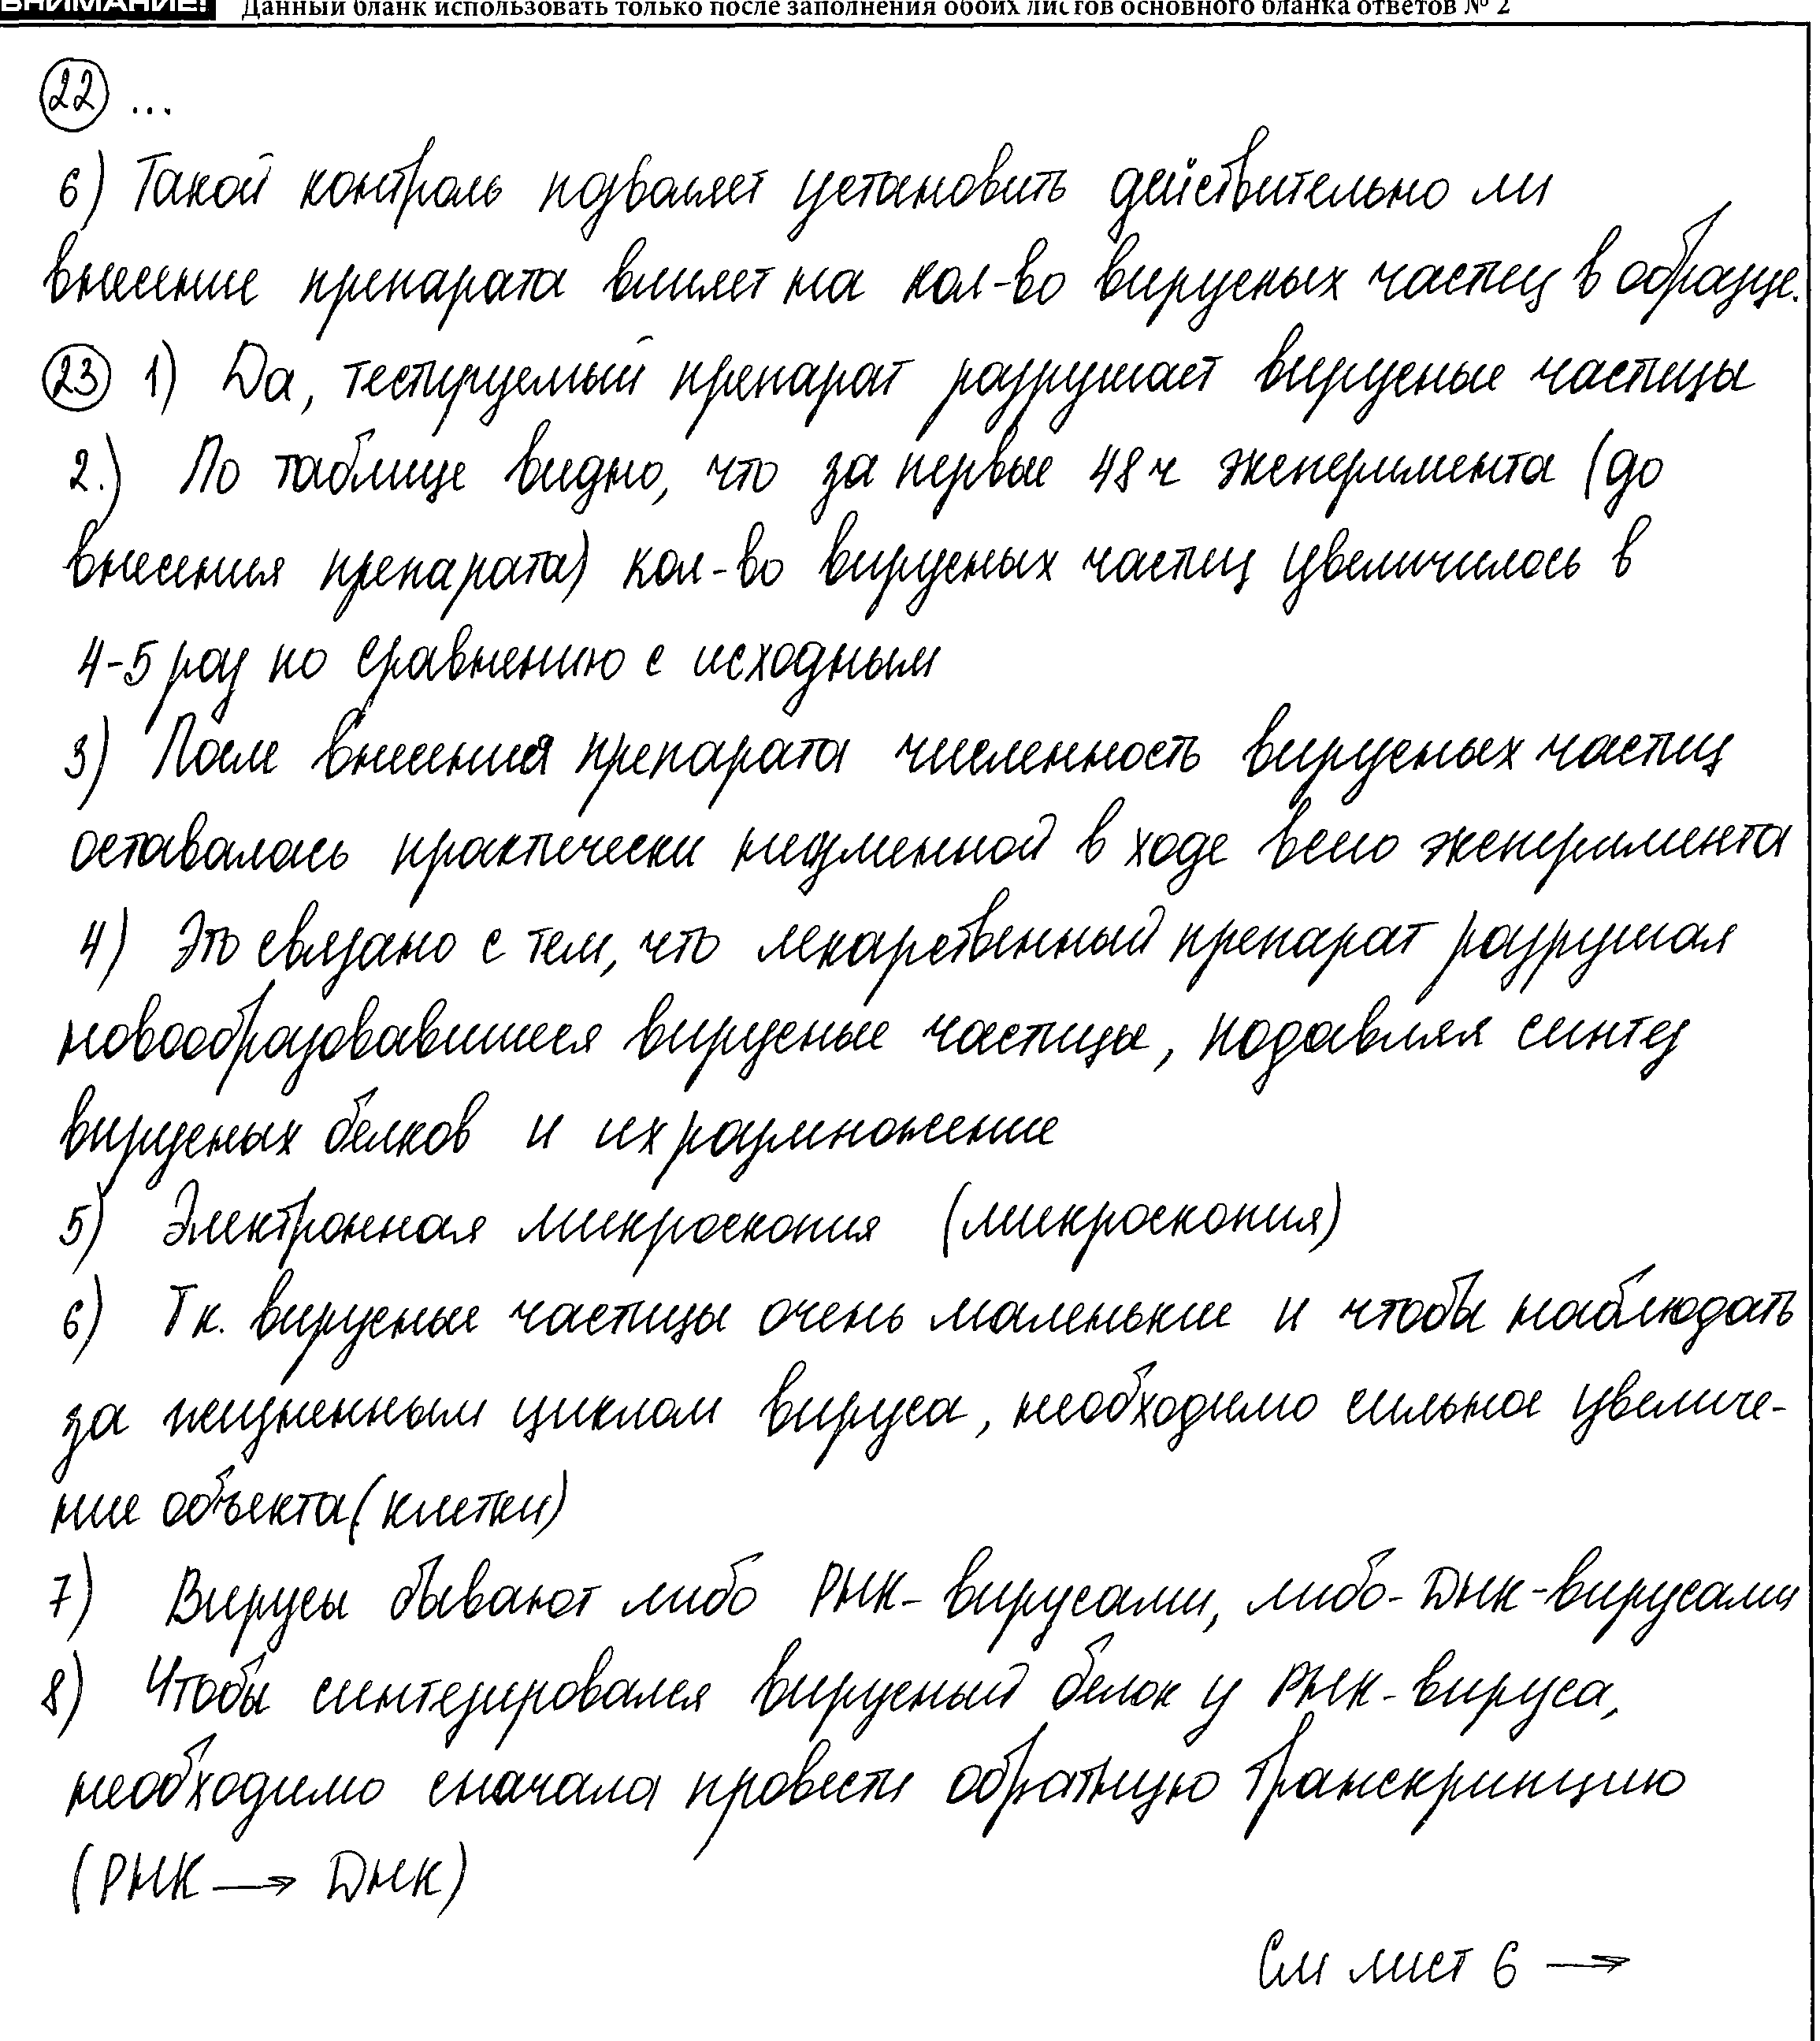 ВНИМАНИЕ! Данный бланк использовать только после заполнения обоих листов основного бланка ответов № 2
22 ...
6) Такой контроль позволяет установить действительно ли
внесение препарата влияет на кол-во вирусных частиц в образце.
23 1) Да, тестируемый препарат разрушает вирусные частицы
2.) По таблице видно, что за первые 48 ч эксперимента (до
внесения препарата) кол-во вирусных частиц увеличилось в
4-5 раз по сравнению с исходным
3) После внесения препарата численность вирусных частиц
оставалась практически неизменной в ходе всего эксперимента
4) Это связано с тем, что лекарственный препарат разрушал
новообразовавшиеся вирусные частицы, подавляя синтез
вирусных белков и их размножение
5) Электронная микроскопия (микроскопия)
6) Тк. вирусные частицы очень маленькие и чтобы наблюдать
за жизненным циклом вируса, необходимо сильное увеличе-
ние объекта (клетки)
7) Вирусы бывают либо РНК-вирусами, либо-ДНК-вирусами
8) Чтобы синтезировался вирусный белок у РНК-вируса,
необходимо сначала провести обратную транскрипцию
(РНК → ДНК)
См лист 6 →